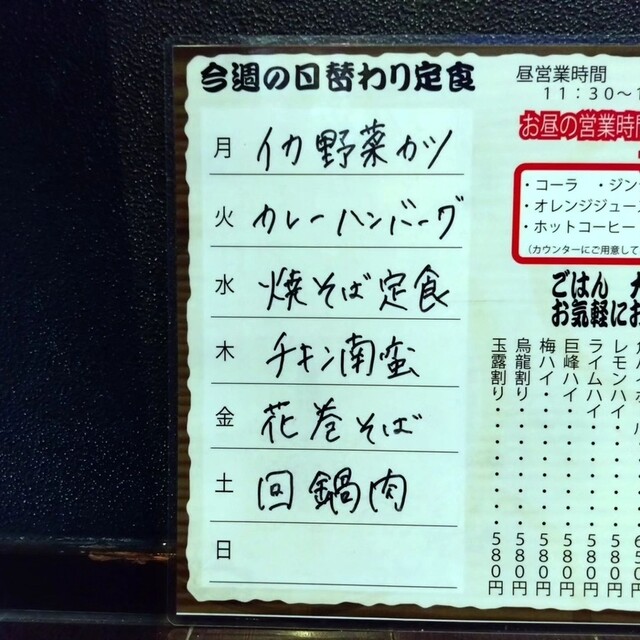 今週の日替わり定食
月 イカ野菜カツ
火 カレーハンバーグ
水 焼そば定食
木 チキン南蛮
金 花巻そば
土 回鍋肉
日
昼営業時間
11:30〜1
お昼の営業時間
・コーラ ・ジン
・オレンジジュー
・ホットコーヒー
(カウンターにご用意して
ごはん
お気軽にお
レモンハイ・・・・・・580円
ライムハイ・・・・・・580円
巨峰ハイ・・・・・・580円
梅ハイ・・・・・・580円
烏龍割り・・・・・・580円
玉露割り・・・・・・580円